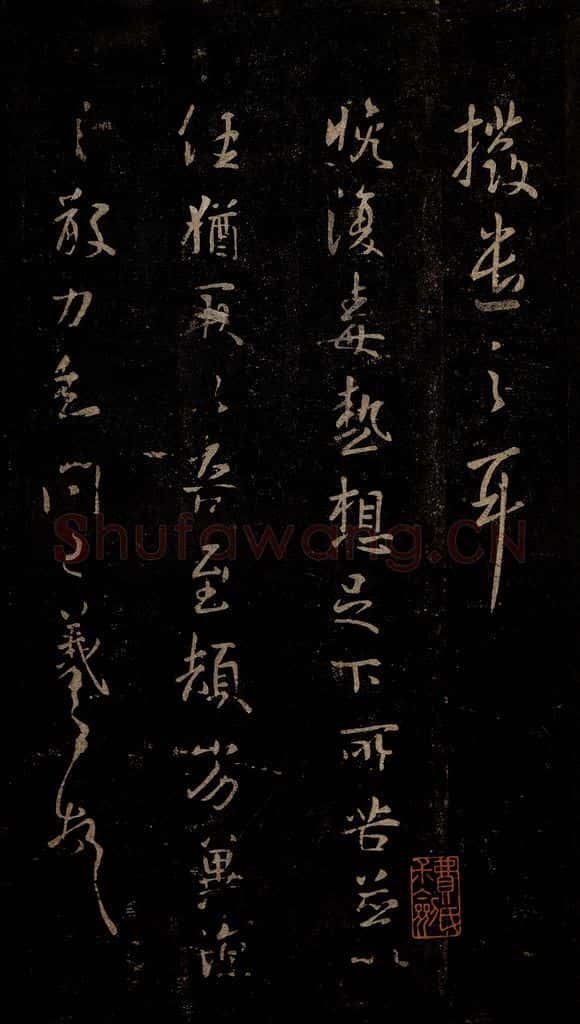 撥遣之耳
晚復毒熱想足下所苦並以
佳猶耿耿吾至頓劣冀涼
散力問王羲之頓首
費氏
Shufawang.CN